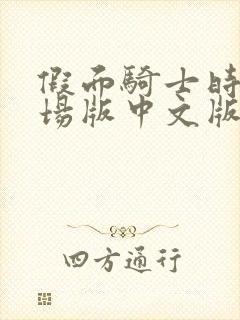 假面騎士時
場版中文版
四方通行